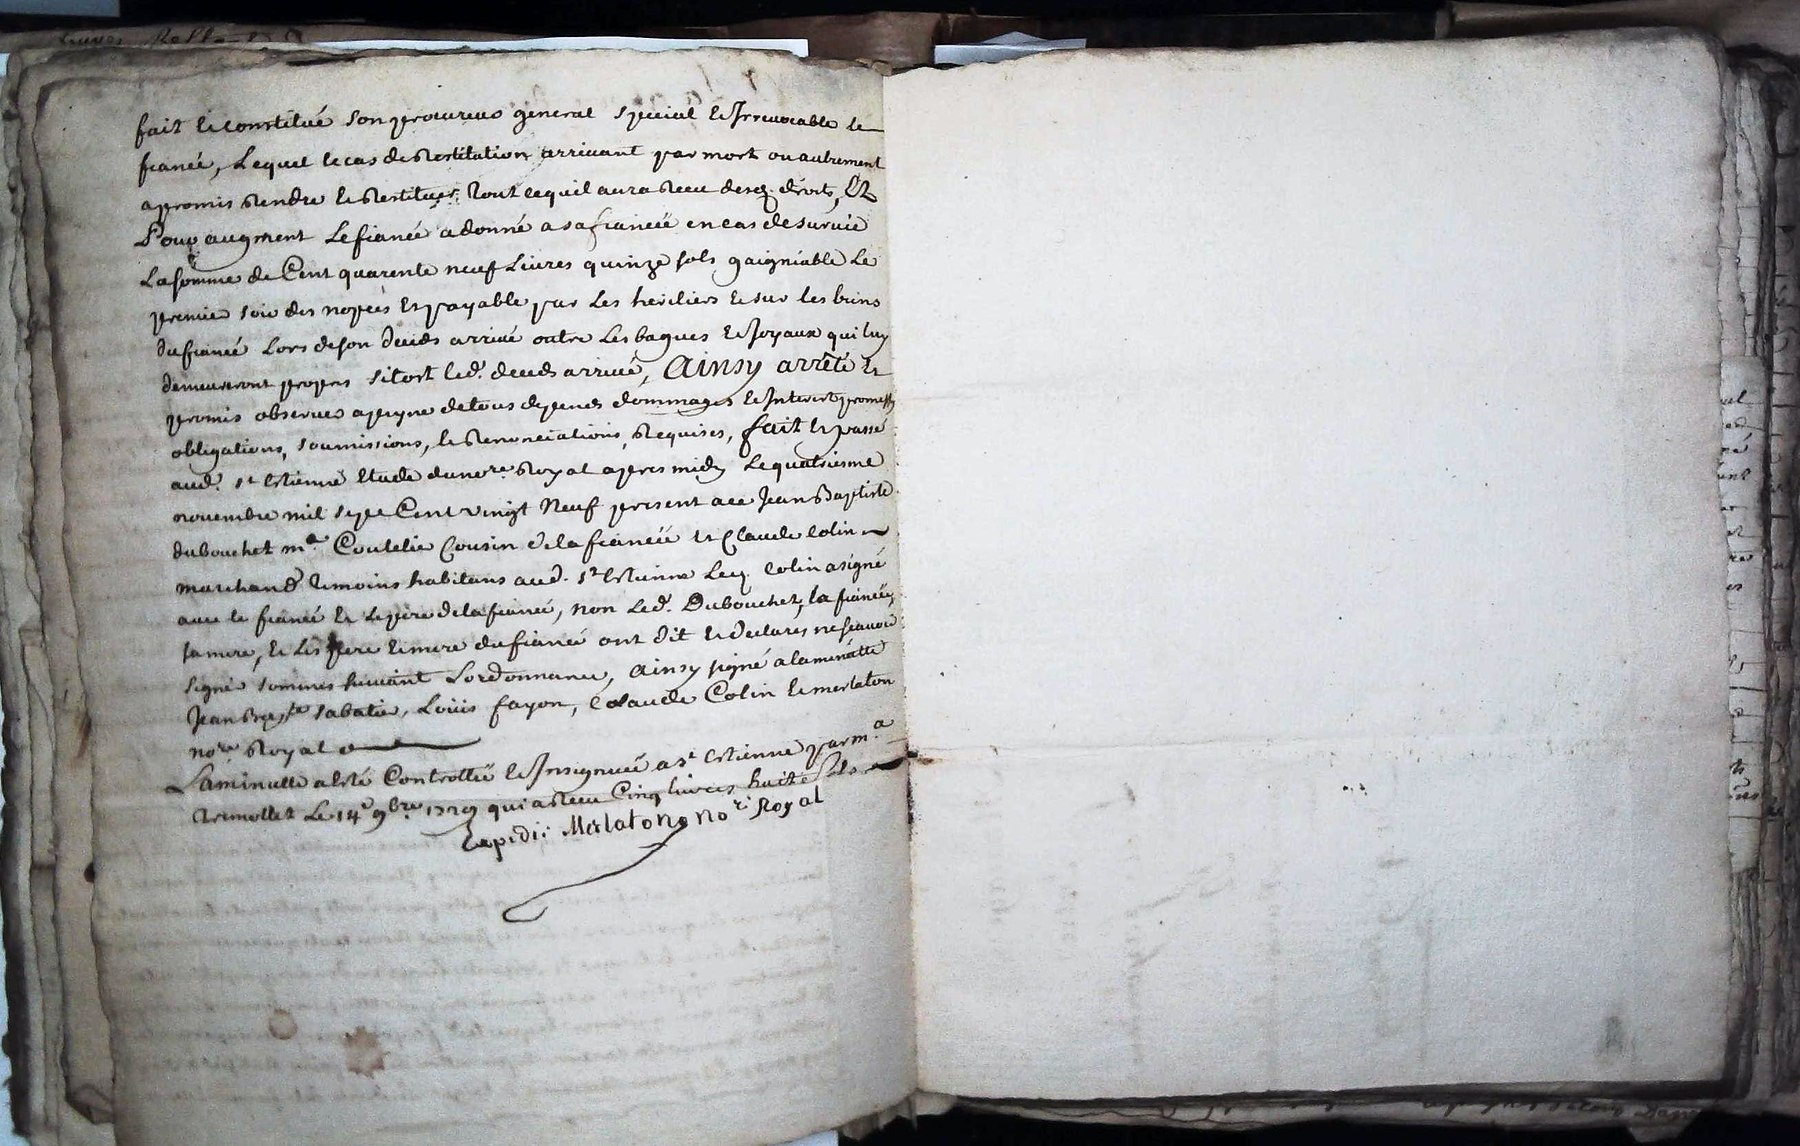 fait et constitué son procureur general special et Irrevocable le
fiancé, Lequel le cas de Restitution arrivant par mort ou autrement
a promis Rendre et Restituer tout ce quil aura Receu desq. droits, Et
Pour augment Le fiancé a donné a sa fianceé en cas de survie
La somme de Cent quarente neuf Livres quinze sols gaigniable Le
premier soir des nopces et payable par Les heritiers et sur les biens
du fiancé Lors de son deceds arrivé outre Les bagues et Joyaux qui luy
demeureront propres sitost led. deceds arrivé, Ainsy arrêté et
promis observer a peyne de tous depends dommages et Interest promesses
obligations, soumissions, et Renonciations Requises, fait et passé
aud. st Etienne Etude du nore. Royal apres midy Le quatriesme
novembre mil sept Cent vingt Neuf present a ce Jean Baptiste
dubouchet me Coutelier Cousin de la fianceé et Claude Colin
marchand temoins habitans aud. st Etienne Leq. Colin a signé
avec le fiancé et Le pere de la fianceé, non Led. Dubouchet, la fianceé,
sa mere, et Les pere et mere du fiancé ont dit et declarés ne sçavoir
signer sommés suivant Lordonnance, Ainsy signé a la minutte
Jean Bapte sabatier, Loüis fayon, Claude Colin et merlaton
nore Royal
La minutte a été Controlleé et Insignueé a st Etienne par me
tremollet Le 14e 9bre 1729 qui a Receu Cinq livres huit sols
Expedié Merlaton nore Royal